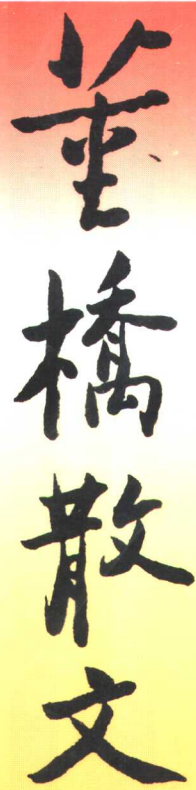 董橋散文